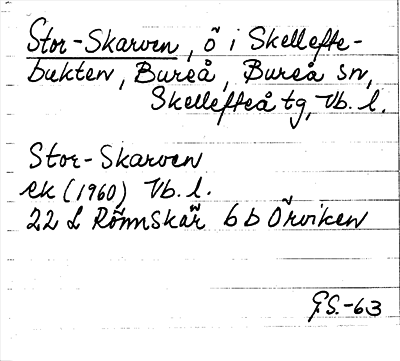 Stor-Skarven, ö i Skellefte-
bukten, Bureå, Bureå sn,
Skellefteå tg, Vb. l.
Stor-Skarven
ek (1960) Vb. l.
22 L Rönnskär 6 b Örviken
G.S.-63